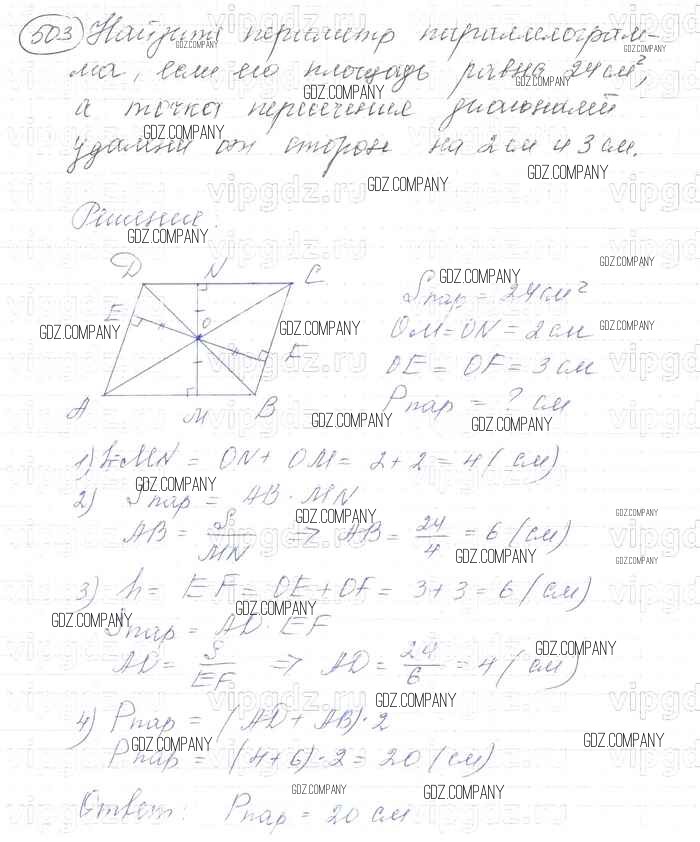 503 Найдите периметр параллелограм-
ма, если его площадь равна 24 см²,
а точка пересечения диагоналей
удалена от сторон на 2 см и 3 см.
Решение:
D N C
E O E
A M B
Sпар = 24 см²
OM = ON = 2 см
OE = OF = 3 см
Pпар = ? см
1) h = MN = ON + OM = 2 + 2 = 4 (см)
2) Sпар = AB · MN
AB = S/MN => AB = 24/4 = 6 (см)
3) h = EF = OE + OF = 3 + 3 = 6 (см)
Sпар = AD · EF
AD = S/EF => AD = 24/6 = 4 (см)
4) Pпар = (AD + AB) · 2
Pпар = (4 + 6) · 2 = 20 (см)
Ответ: Pпар = 20 см
GDZ.COMPANY
vipgdz.ru